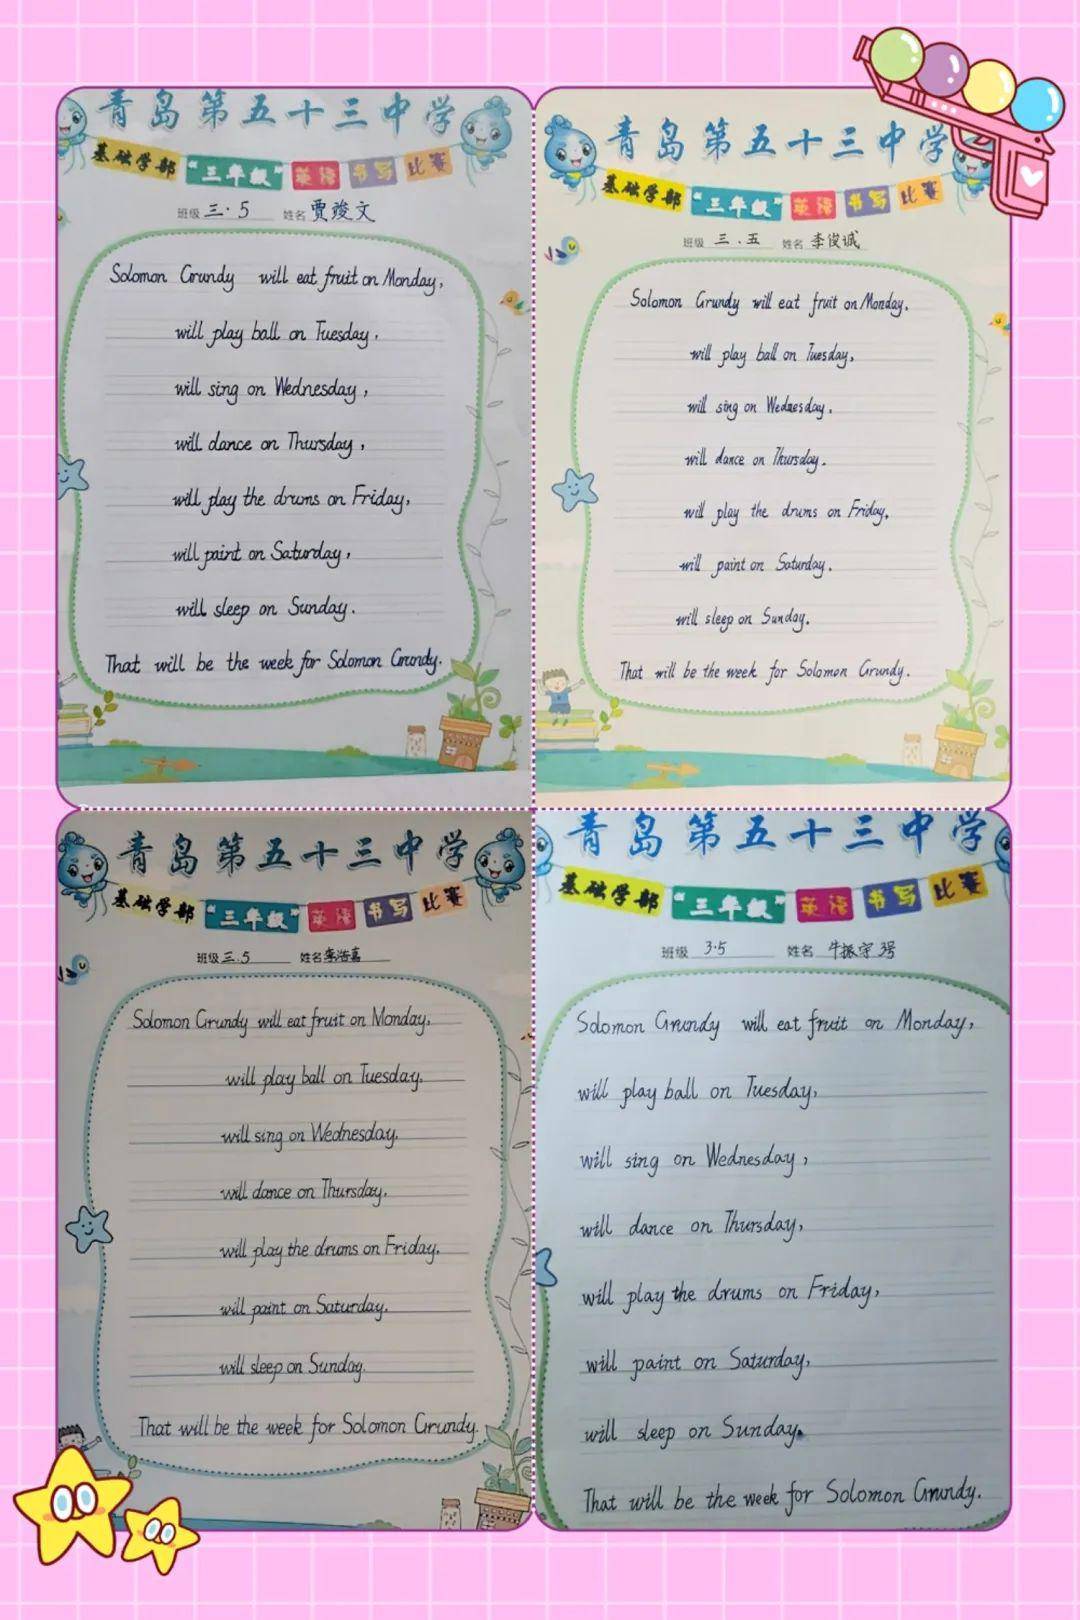 青岛第五十三中学
基础学部 “三年级” 英语 书写 比赛
班级 三·5 姓名 贾竣文
Solomon Grundy will eat fruit on Monday,
will play ball on Tuesday,
will sing on Wednesday,
will dance on Thursday,
will play the drums on Friday,
will paint on Saturday,
will sleep on Sunday.
That will be the week for Solomon Grundy.
青岛第五十三中学
基础学部 “三年级” 英语 书写 比赛
班级 三.五 姓名 李俊诚
Solomon Grundy will eat fruit on Monday,
will play ball on Tuesday,
will sing on Wednesday,
will dance on Thursday.
will play the drums on Friday,
will paint on Saturday.
will sleep on Sunday.
That will be the week for Solomon Grundy.
青岛第五十三中学
基础学部 “三年级” 英语 书写 比赛
班级 三.5 姓名 李浩嘉
Solomon Grundy will eat fruit on Monday,
will play ball on Tuesday,
will sing on Wednesday,
will dance on Thursday,
will play the drums on Friday,
will paint on Saturday,
will sleep on Sunday.
That will be the week for Solomon Grundy.
青岛第五十三中学
基础学部 “三年级” 英语 书写 比赛
班级 3·5 姓名 牛振宇
Solomon Grundy will eat fruit on Monday,
will play ball on Tuesday,
will sing on Wednesday,
will dance on Thursday,
will play the drums on Friday,
will paint on Saturday,
will sleep on Sunday.
That will be the week for Solomon Grundy.